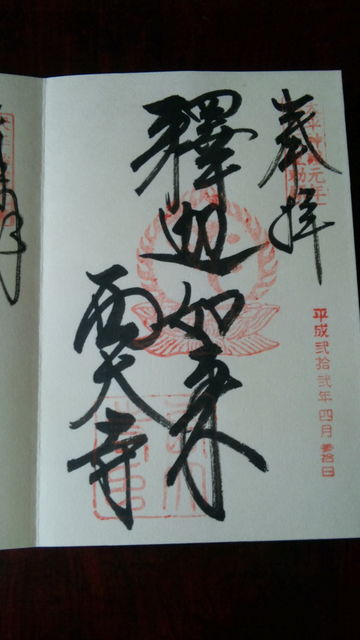 奉拝
平成弐拾弐年四月参拾日
釋迦如来
西大寺